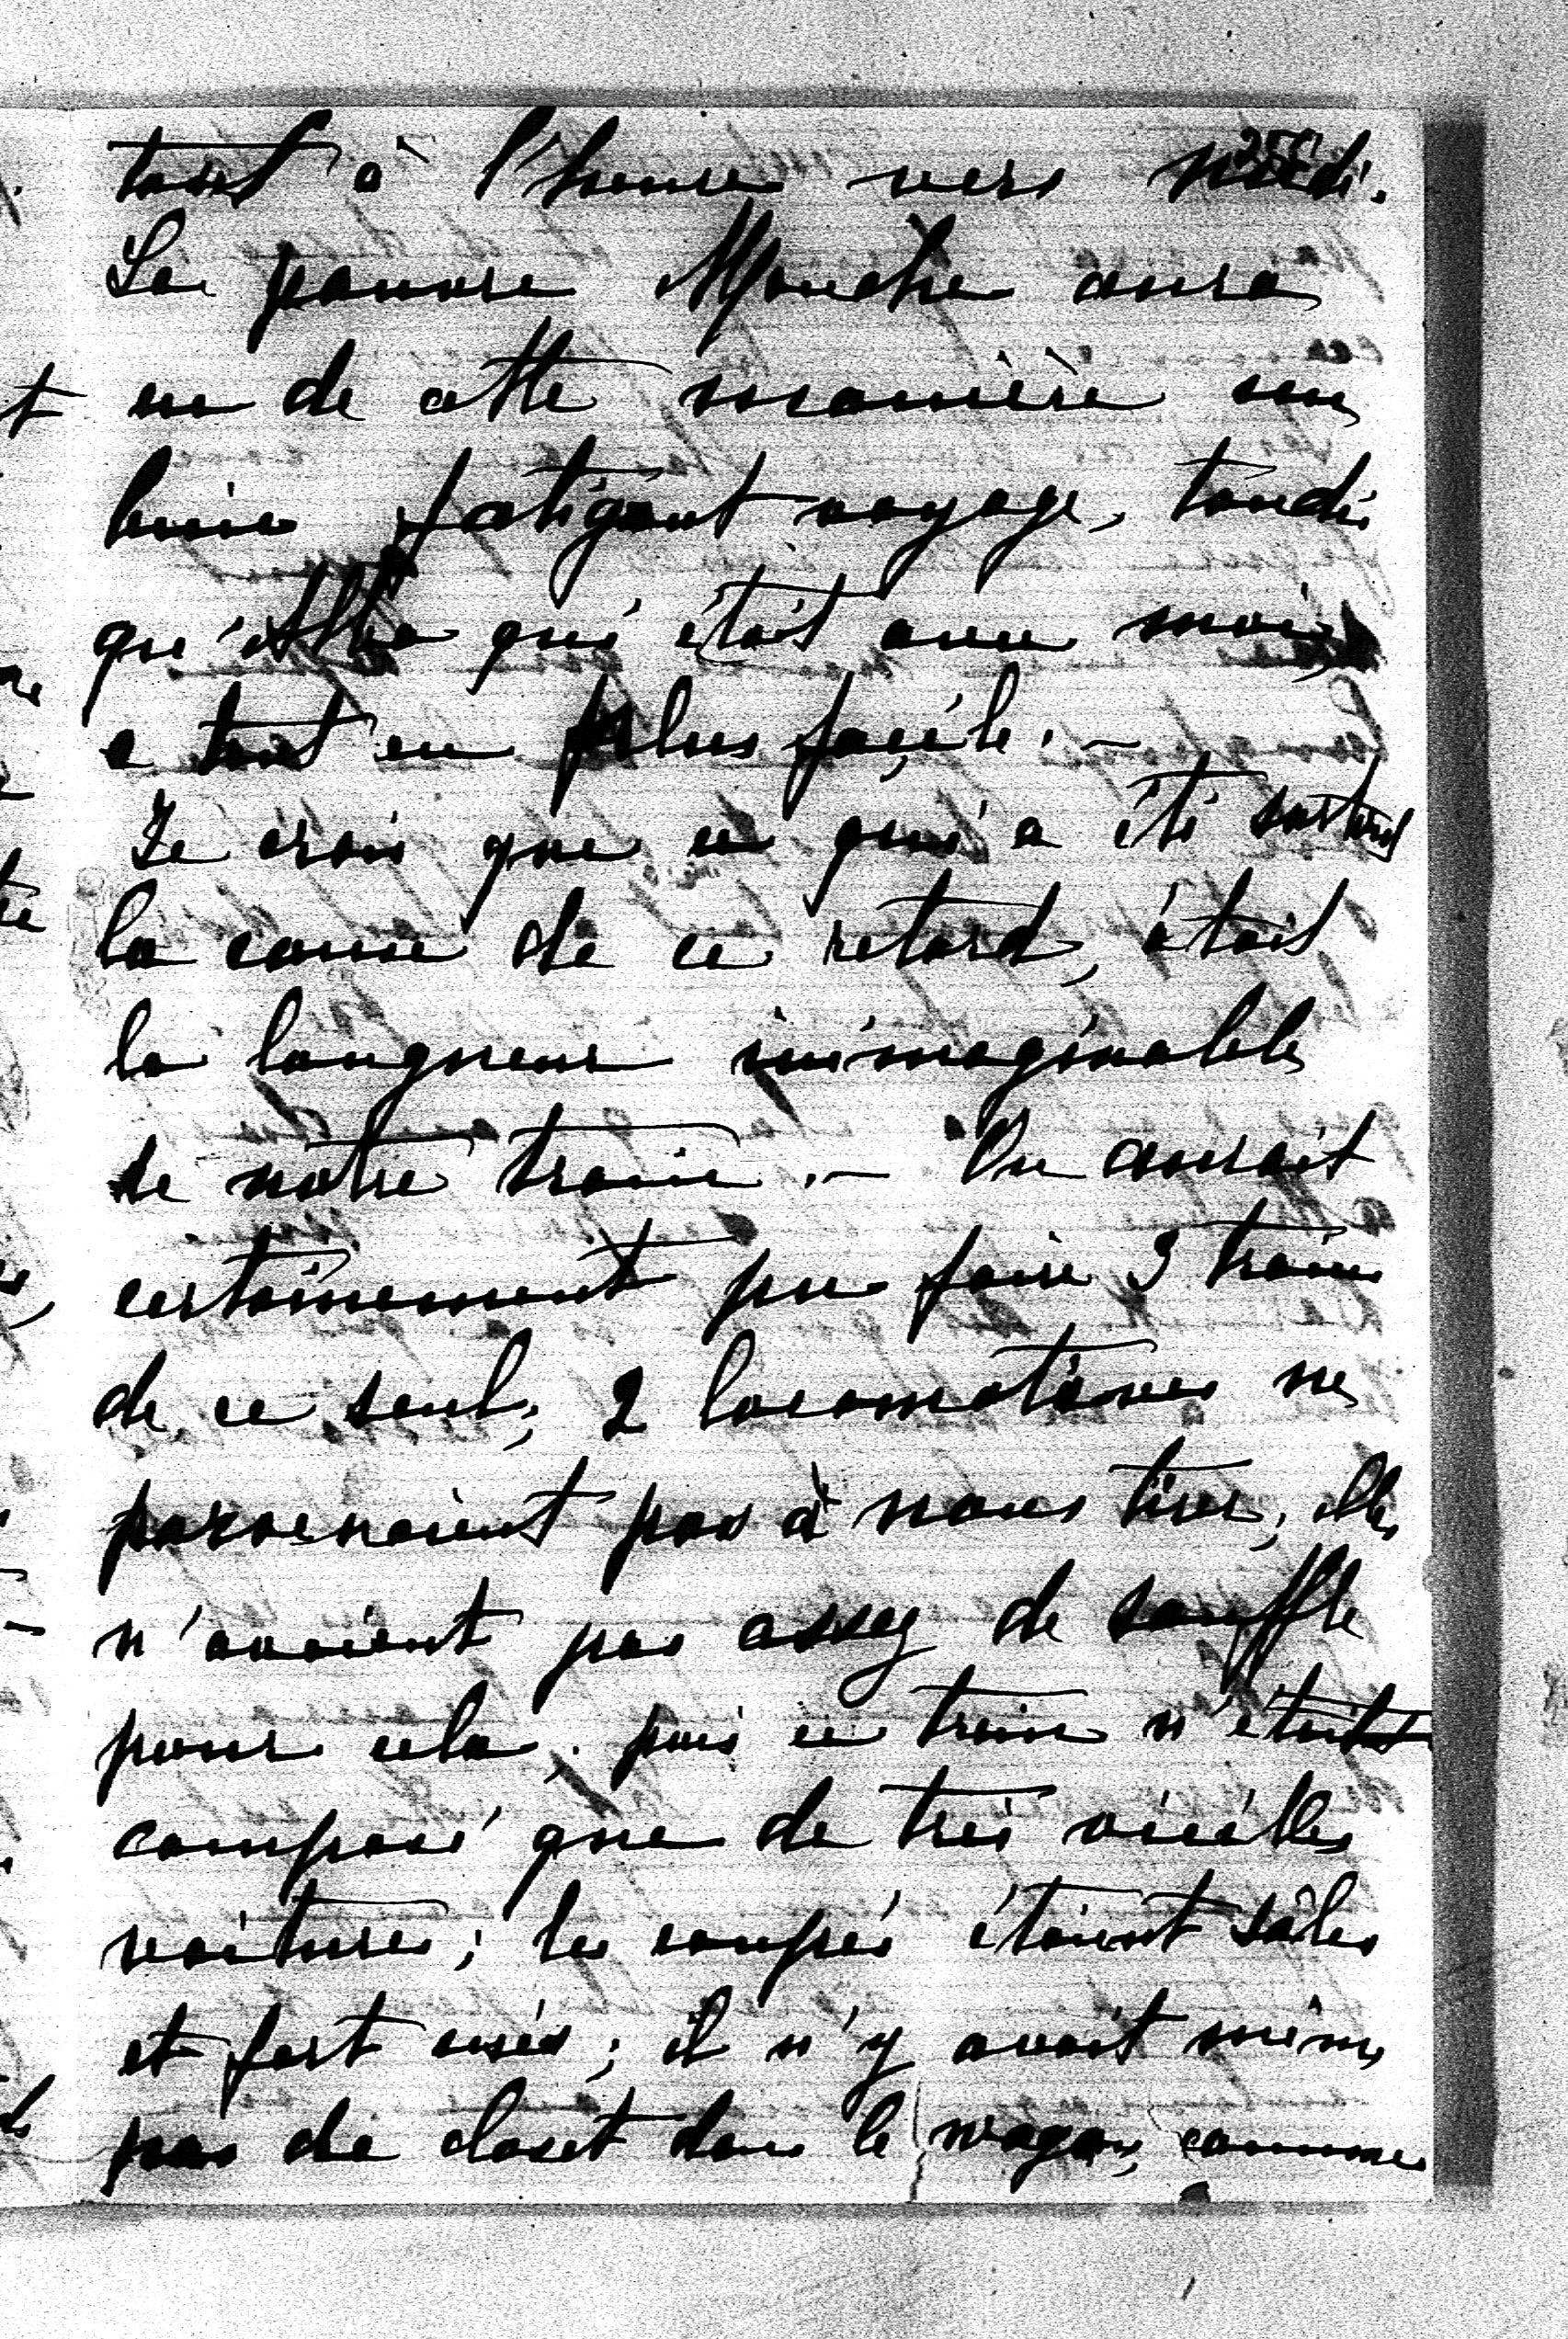 tout à l'heure vers midi.
La pauvre Mouche aura
eu de cette manière un
bien fatigant voyage, tandis
qu'Alba qui était avec moi,
a tout eu plus façile. -
Je crois que ce qui a été surtout
la cause de ce retard, était
la longueur inimaginable
de nôtre train. - On aurait
certainement pu faire 3 trains
de ce seul; 2 locomotives ne
parvenaient pas à nous tirer, elles
n'avaient pas assez de souffle
pour cela; puis ce train n'était
composé que de très vieilles
voitures; les coupés étaient sâles
et fort usés; il n'y avait même
pas de closet dans le wagon, comme